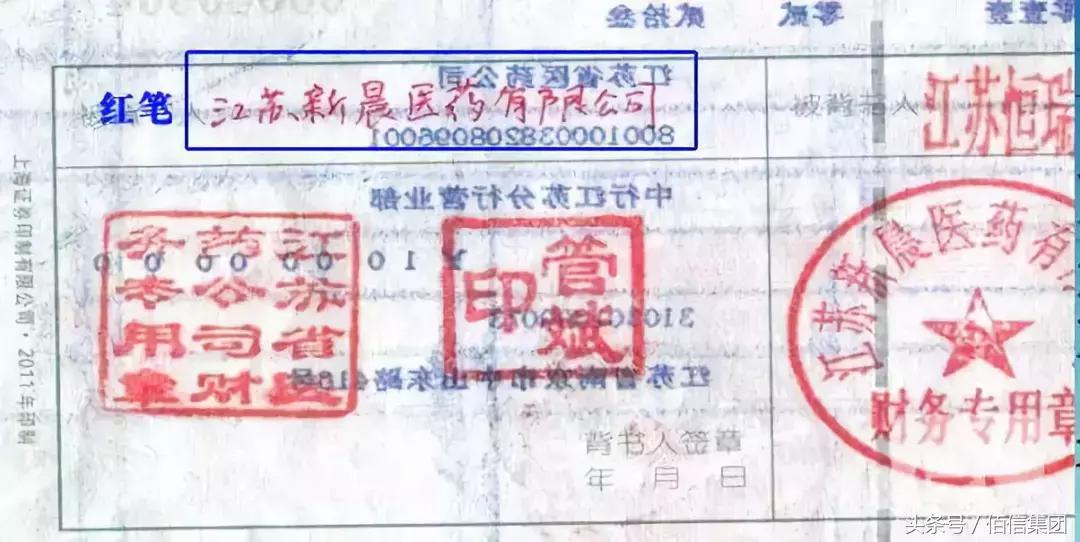 贰拾叁
零贰
江苏省医药公司
红笔
江苏新晨医药有限公司
被背书人
江苏恒瑞
中行江苏分行营业部
江苏省医
药公司财
务专用章
管斌
印
江苏新晨医药有
财务专用章
背书人签章
年 月 日
上海证券印制有限公司·2011年印制
头条号／佰信集团